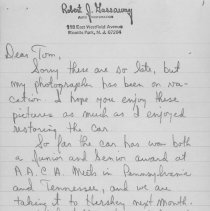 Robert J. Gassaway
918 East Westfield Avenue
Roselle Park, N. J. 07204
Dear Tom,
Sorry these are so late, but
my photographer has been on va-
cation. I hope you enjoy these
pictures as much as I enjoyed
restoring the car.
So far the car has won both
a Junior and Senior award at
A A. C A. Meets in Pennsylvania
and Tennessee, and we are
taking it to Hershey next month.